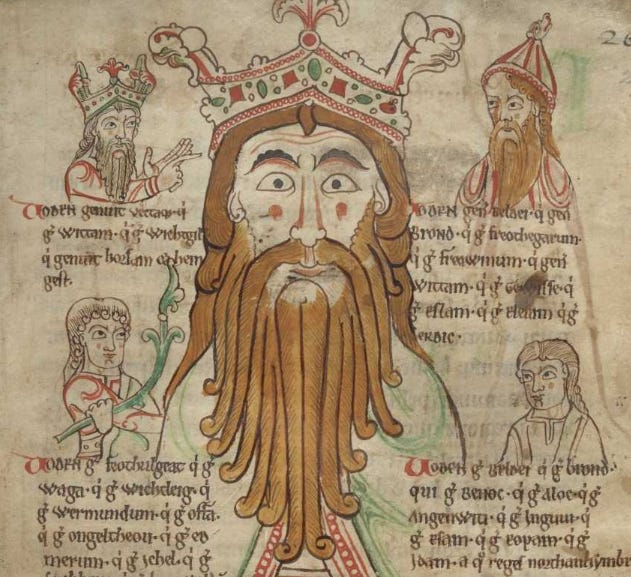 26
Woden genuit vectam · q̇
g̊ wittam · q̇ g̊ wiehtgil
q̇ genuit horsam ⁊ hen
gest.
Woden gen̄ beldei · q̇ gen̄
Brond · q̇ g̊ freothegarum ·
q̇ g̊ freawinum · q̇ gen̄
wittam · q̇ g̊ gewisse · q̇
g̊ eslam · q̇ g̊ eleam q̇ g̊
cerdic ·
Woden g̊ freothulgeat q̇ g̊
waga · q̇ g̊ wichtleig · q̇
g̊ wermundum · q̇ g̊ offa ·
q̇ g̊ ongeltheou · q̇ g̊ eo
merum · q̇ g̊ ichel · q̇ g̊
Woden g̊ beldei q̇ g̊ brond ·
qui g̊ benoc · q̇ g̊ aloc · q̇ g̊
Angenwit · q̇ g̊ Inguui · q̇
g̊ esam · q̇ g̊ eopam · q̇ g̊
Idam · a q̊ regeſ northanhymbr